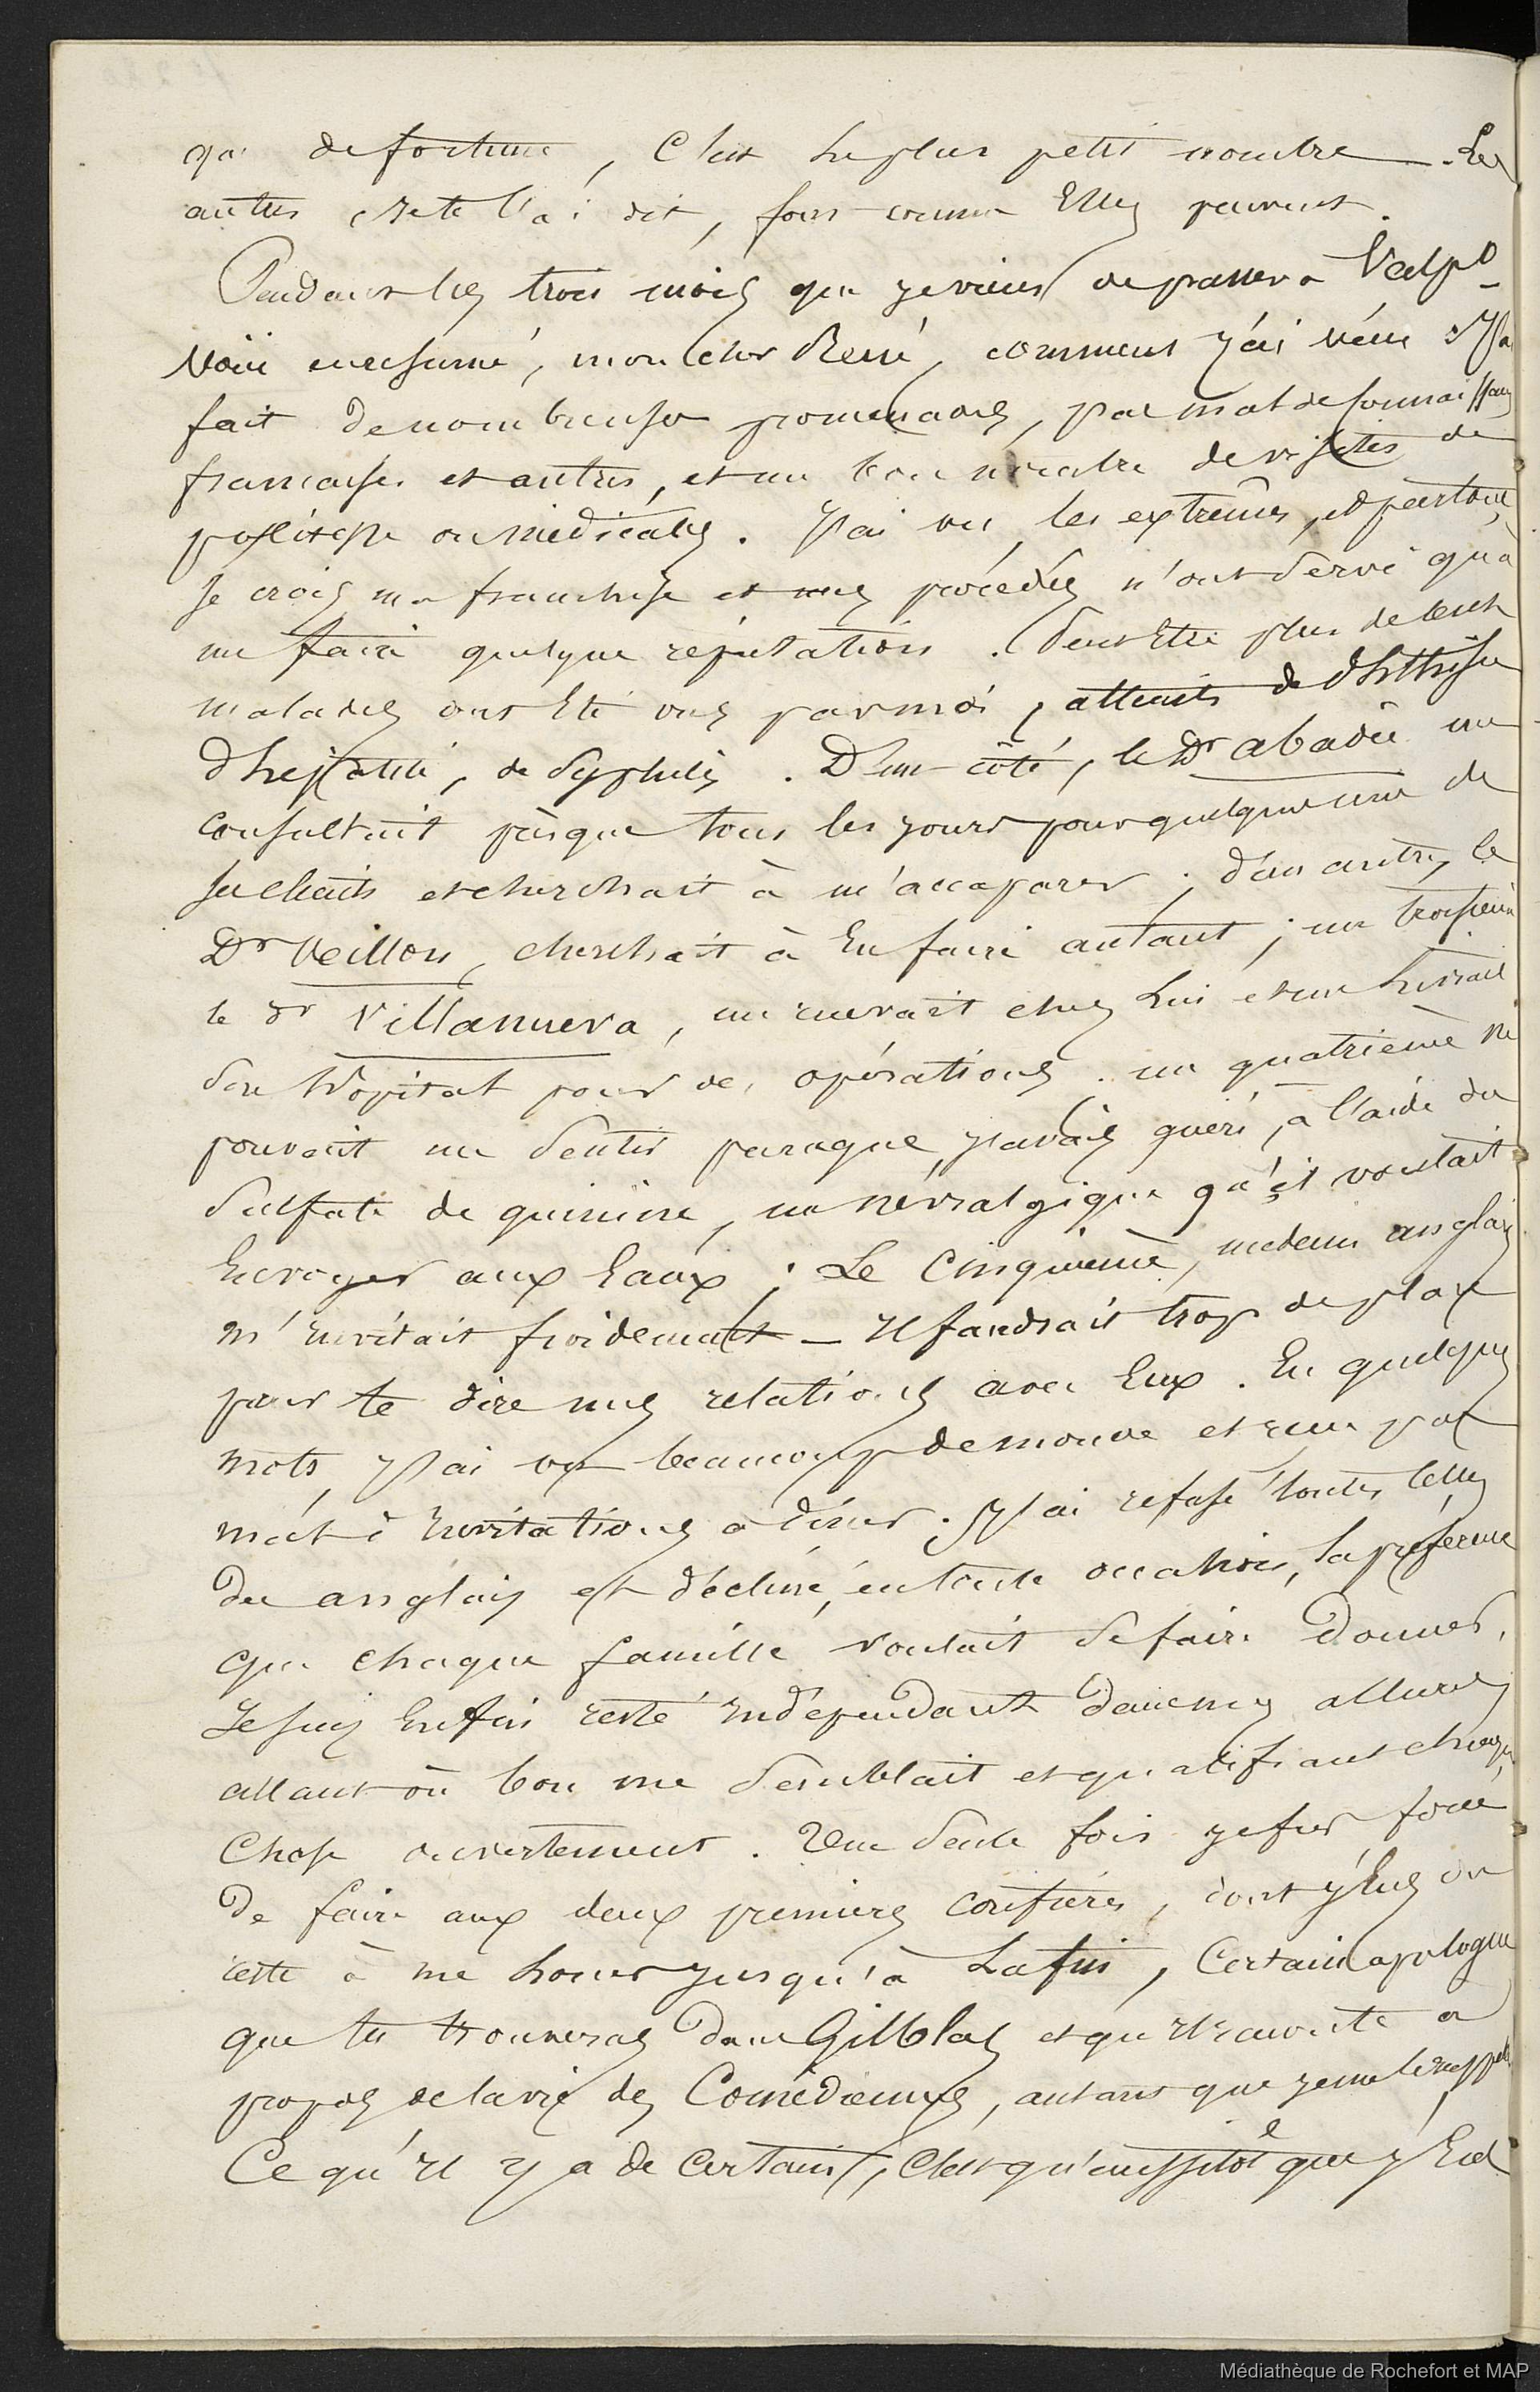 que de fortune, C'est le plus petit nombre. Les
autres, Je te l'ai dit, font comme Elles peuvent.
Pendant les trois mois que je viens de passer à Valpo
Voici en resumé, mon cher René, comment j'ai vécu. J'ai
fait de nombreuses promenades, pas mal de connaissances
françaises et autres, et un bon nombre de visites de
politesse ou médicales. J'ai vu les extrêmes, et partout,
Je crois, ma franchise et mes procédés n'ont servi qu'à
me faire quelque réputation. Peut Etre plus de cent
malades ont Eté vus par moi, atteints de phthisie
d'hépatite, de Syphilis. D'un côté, le Dr abadie me
consultait presque tous les jours pour quelqu'un de
ses clients et cherchait à m'accaparer; d'un autre, le
Dr Veillon, cherchait à En faire autant; un troisième
le dr Villanueva, me menait chez lui et me livrait
Son hôpital pour des opérations. un quatrième ne
pouvait me Sentir parceque j'avais guéri, à l'aide du
Sulfate de quinine, un névralgique qu'il voulait
Envoyer aux Eaux; Le Cinquième, médecin anglais
m'invitait froidement _ Il faudrait trop de place
pour te dire mes relations avec Eux. En quelques
mots, J'ai vu beaucoup de monde et reçu pas
mal d'invitations à dîner. J'ai refusé toutes celles
des anglais et décliné, en toute occasion, la préférence
que chaque famille voulait Se faire Donner.
Je suis Enfin resté indépendant dans mes allures
allant où bon me Semblait et qualifiant chaque
Chose ouvertement. Une Seule fois je fus forcé
De faire aux deux premiers confrères, dont j'Eus du
reste à me louer jusqu'à La fin, Certain apologue
que tu trouveras Dans Gil Blas et qu'il raconte à
propos de la vie des Comédiennes, autant que je me le rappelle.
Ce qu'il y a de Certain, C'est qu'aussitôt que j'Eus
Médiathèque de Rochefort et MAP